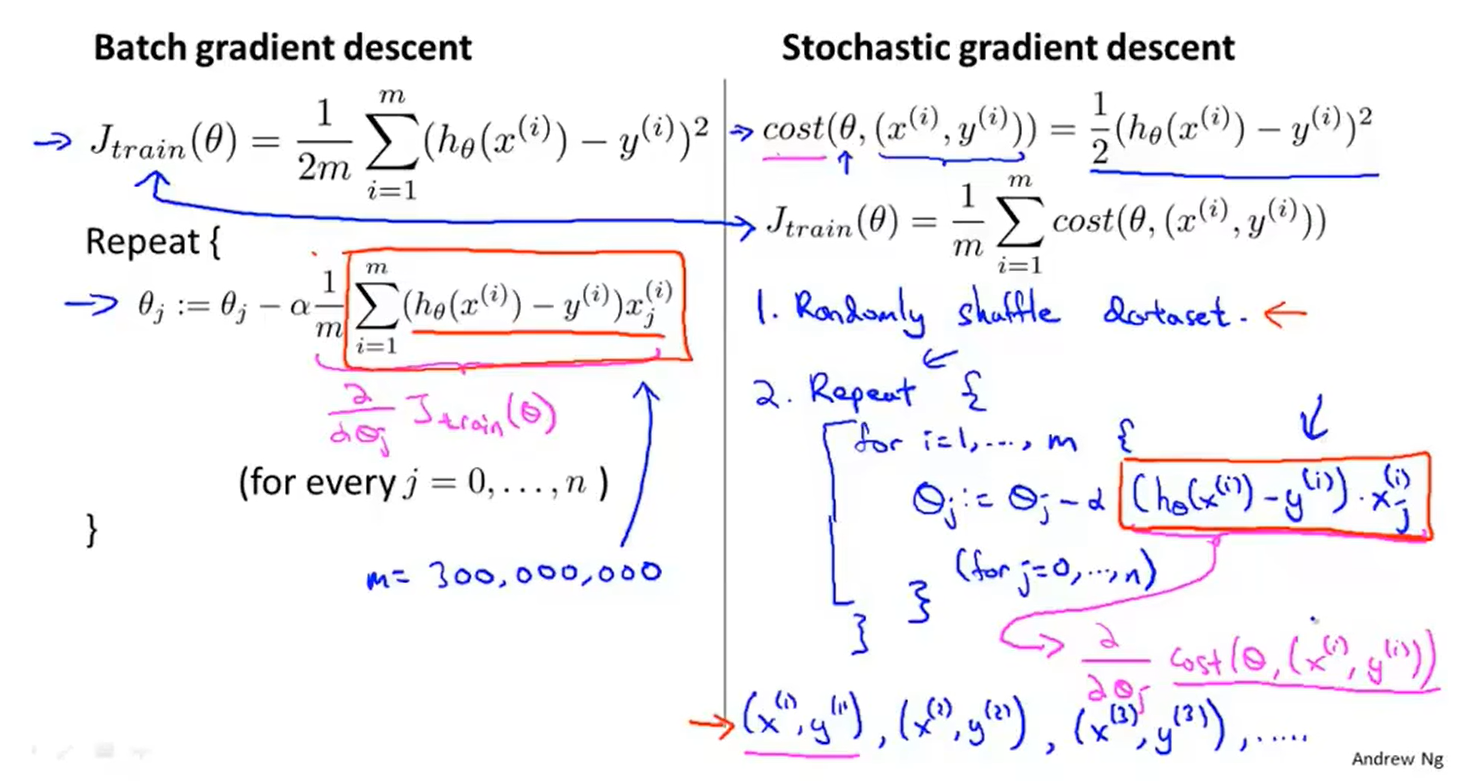 Batch gradient descent
→ J_train(θ) = 1/2m ∑_{i=1}^{m} (h_θ(x^(i)) − y^(i))²
Repeat {
→ θ_j := θ_j − α 1/m ∑_{i=1}^{m} (h_θ(x^(i)) − y^(i))x_j^(i)
∂/∂θ_j J_train(θ)
(for every j = 0, . . . , n )
}
m = 300,000,000
Stochastic gradient descent
→ cost(θ, (x^(i), y^(i))) = 1/2 (h_θ(x^(i)) − y^(i))²
J_train(θ) = 1/m ∑_{i=1}^{m} cost(θ, (x^(i), y^(i)))
1. Randomly shuffle dataset. ←
2. Repeat {
for i=1, ..., m {
θ_j := θ_j − α (h_θ(x^(i)) − y^(i)) · x_j^(i)
(for j=0, ..., n)
}
}
→ ∂/∂θ_j cost(θ, (x^(i), y^(i)))
→ (x^(1), y^(1)), (x^(2), y^(2)), (x^(3), y^(3)), .....
Andrew Ng